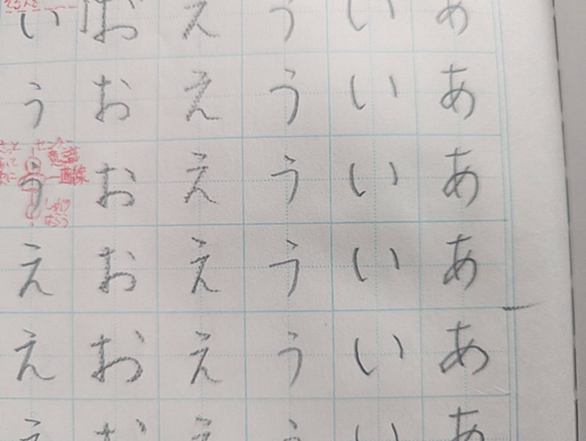 ああああああ
いいいいい
ううううう
ええええええ
おおおおおお
いううええ
一直線